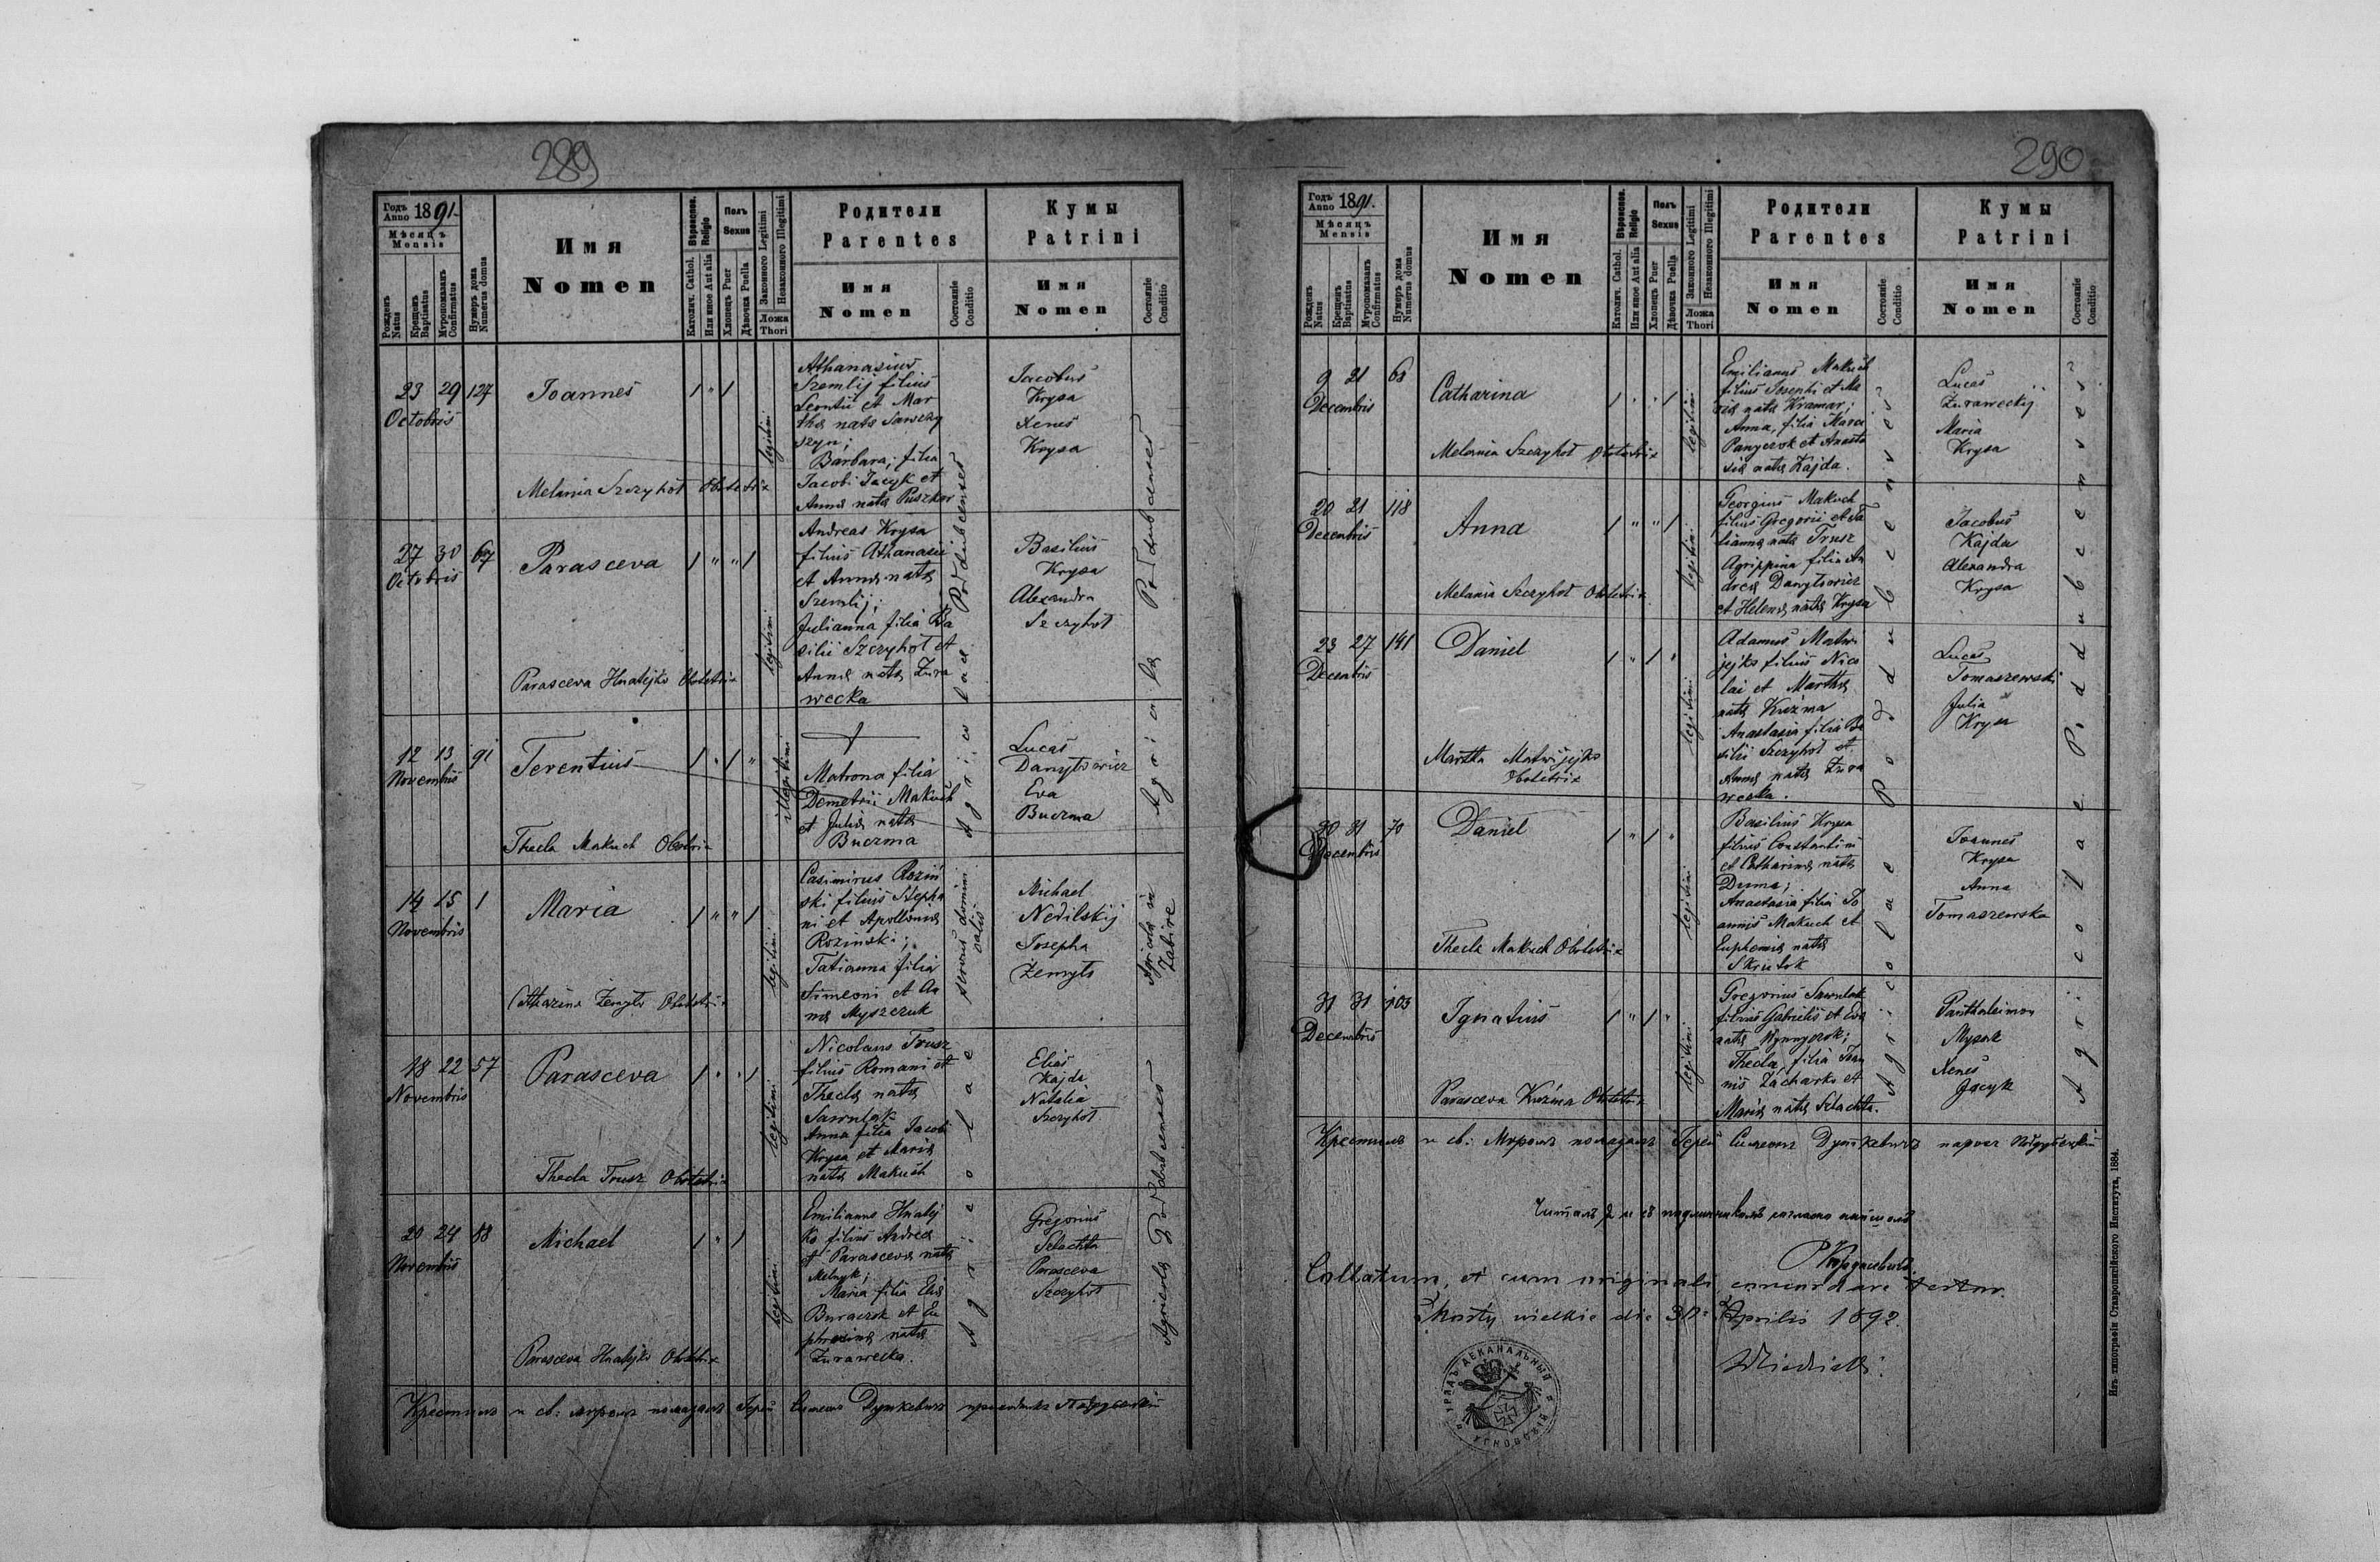 289
Годъ Anno 1891.
Мѣсяцъ
Mensis
Рожденъ Natus
Крещенъ Baptisatus
Мѵропомазанъ Confirmatus
Нумеръ дома Numerus domus
Имя
Nomen
Вѣроиспов. Religio
Католич. Cathol.
Или иное Aut alia
Полъ
Sexus
Хлопецъ Puer
Дѣвочка Puella
Законного Legitimi
Незаконного Illegitimi
Ложа
Thori
Родители
Parentes
Имя
Nomen
Состояніе Conditio
Кумы
Patrini
Имя
Nomen
Состояніе Conditio
23 29 127
Octobris
Joannes
1 " 1
legitimi
Athanasius
Szemlij filius
Leontii et Mar
thae nata Sawczy
szyn;
Barbara, filia
Jacobi Jacyk et
Anna nata Puszkar
Jacobus
Krysa
Xenes
Krysa
Melania Szczyhoł Obstetrix
27 30 67
Octobris
Parasceva
1 " " 1
legitimi
Andreas Krysa
filius Athanasii
et Anna nata
Szemlij;
Julianna filia Ba
silii Szczyhoł et
Anna nata Zura
wecka
Basilius
Krysa
Alexandra
Szczyhoł
Parasceva Hnatejko Obstetrix
12 13 91
Novembris
Terentius
1 " 1 "
illegitimi
Matrona filia
Demetrii Makuch
et Julia nata
Buczma
Lucas
Danyłowicz
Eva
Buczma
Thecla Makuch Obstetrix
Agricolae Poddubcenses
Agricolae Poddubcenses
14 15 1
Novembris
Maria
1 " " 1
legitimi
Casimirus Rozin
ski filius Stepha
ni et Apollonia
Rozinski;
Tatianna filia
Simeoni et An
na Myszczuk
servus domini
calis
Michael
Nedilskij
Josepha
Żemyło
Agricolae in
Zabire
Catharina Żemyło Obstetrix
18 22 57
Novembris
Parasceva
1 " " 1
legitimi
Nicolaus Trusz
filius Romani et
Thecla nata
Sawulak
Anna filia Jacobi
Krysa et Maria
nata Makuch
Elias
Kajda
Natalia
Szczyhoł
Thecla Trusz Obstetrix
20 24 88
Novembris
Michael
1 " 1
legitimi
Emilianus Hnatej
ko filius Andrea
et Parasceva nata
Melnyk;
Maria filia Elia
Buraczok et Eu
phrosina nata
Zurawecka.
Agricolae
Gregorius
Szlachta
Parasceva
Szczyhoł
Agricolae Poddubcenses
Parasceva Hnatejko Obstetrix
Крестилъ и св: мѵромъ помазалъ Іерей Симеонъ Душкевичъ
290
Годъ Anno 1891.
Мѣсяцъ
Mensis
Рожденъ Natus
Крещенъ Baptisatus
Мѵропомазанъ Confirmatus
Нумеръ дома Numerus domus
Имя
Nomen
Вѣроиспов. Religio
Католич. Cathol.
Или иное Aut alia
Полъ
Sexus
Хлопецъ Puer
Дѣвочка Puella
Законного Legitimi
Незаконного Illegitimi
Ложа
Thori
Родители
Parentes
Имя
Nomen
Состояніе Conditio
Кумы
Patrini
Имя
Nomen
Состояніе Conditio
9 21 68
Decembris
Catharina
1 " " 1
legitimi
Emilianus Makuch
filius Josephi et Ma
ria nata Kramar;
Anna, filia Marci
Panyczok et Anasta
sia nata Kajda.
Lucas
Zuraweckij
Maria
Krysa
Melania Szczyhoł Obstetrix
20 21 118
Decembris
Anna
1 " " 1
legitimi
Georgius Makuch
filius Gregorii et Ta
tianna nata Trusz
Agrippina filia An
drea Danyłowicz
et Helena nata Krysa
Jacobus
Kajda
Alexandra
Krysa
Melania Szczyhoł Obstetrix
23 27 141
Decembris
Daniel
1 " 1 "
legitimi
Adamus Matwi
jejko filius Nico
lai et Martha
nata Kuzma
Anastasia filia Ba
silii Szczyhoł et
Anna nata Zura
wecka.
Lucas
Tomaszewski
Julia
Krysa
Martha Matwijejko
Obstetrix
30 31 70
Decembris
Daniel
1 " 1 "
legitimi
Basilius Krysa
filius Constantini
et Catharina nata
Duma;
Anastasia filia Jo
annis Makuch et
Euphemia nata
Skrutok
Joannes
Krysa
Anna
Tomaszewska
Thecla Makuch Obstetrix
31 31 103
Decembris
Ignatius
1 " 1 "
legitimi
Gregorius Sawulak
filius Gabrielis et Eva
nata Wynnyczok;
Thecla, filia Joan
nis Zacharko et
Maria nata Szlachta.
Panthaleimon
Mysak
Xenes
Jacyk
Parasceva Kuźma Obstetrix
Agricolae Poddubcenses
Agricolae Piddubcenses
Крестилъ и св: Мѵромъ помазалъ Іерей Симеонъ Душкевичъ парохъ
Collatum, et cum originali concordare testor.
Mosty wielkie die 30 Aprilis 1892
УРЯДЪ ДЕКАНАЛЬНЫЙ УГНОВСКІЙ
Изъ типографіи Ставропигійского Института, 1884.